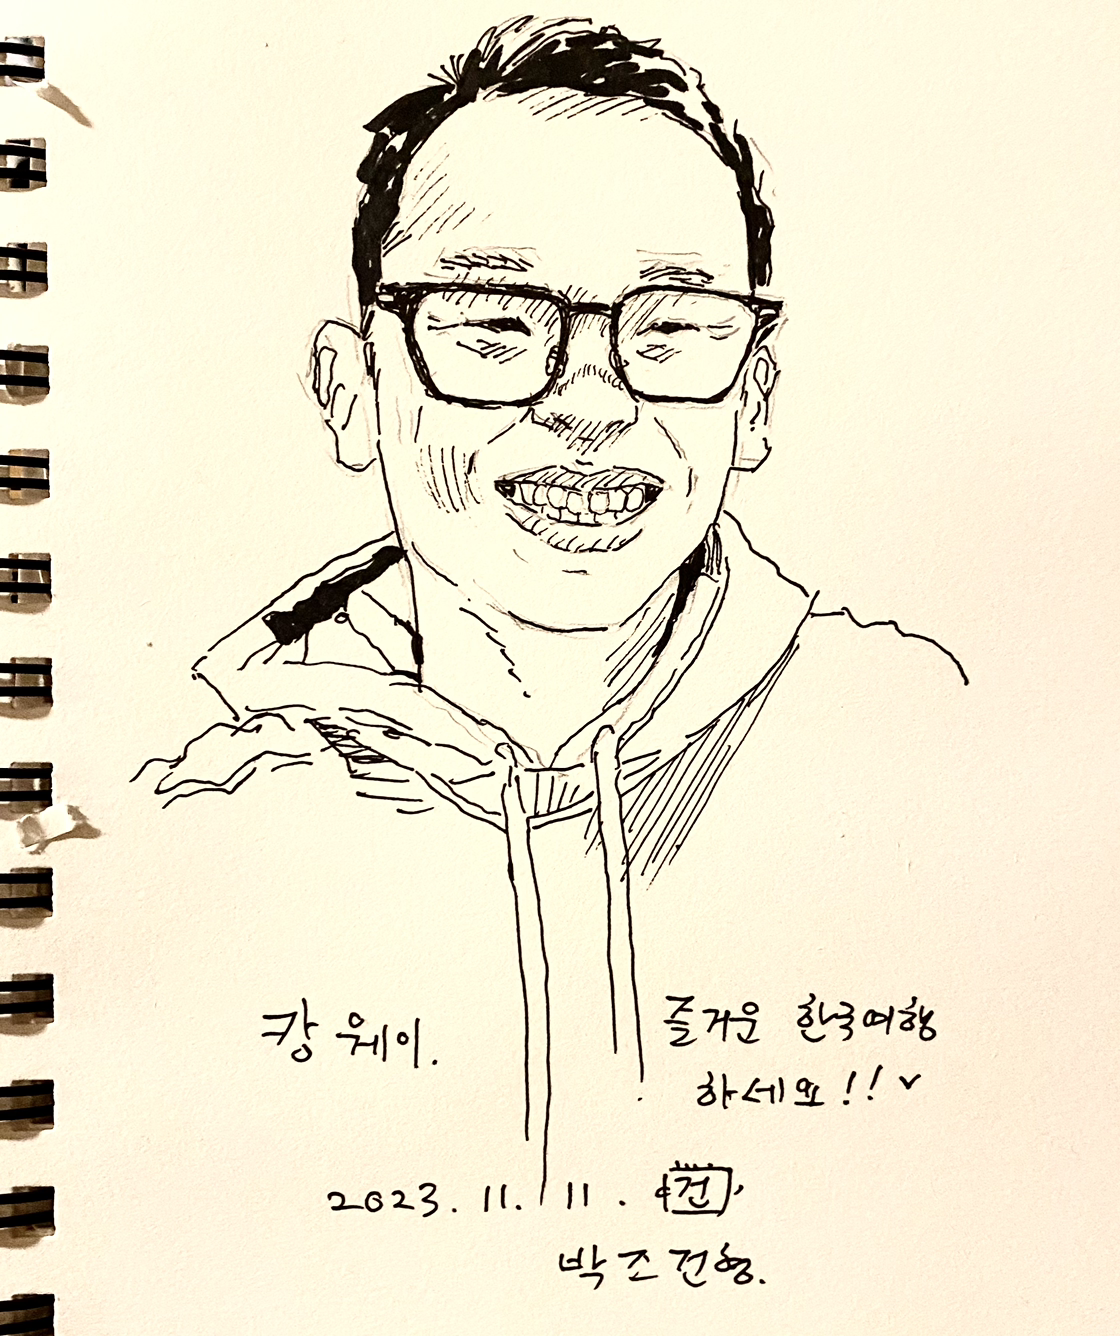 캉 웨이.
즐거운 한국여행
하세요!!
2023. 11. 11. 건
박조건형.